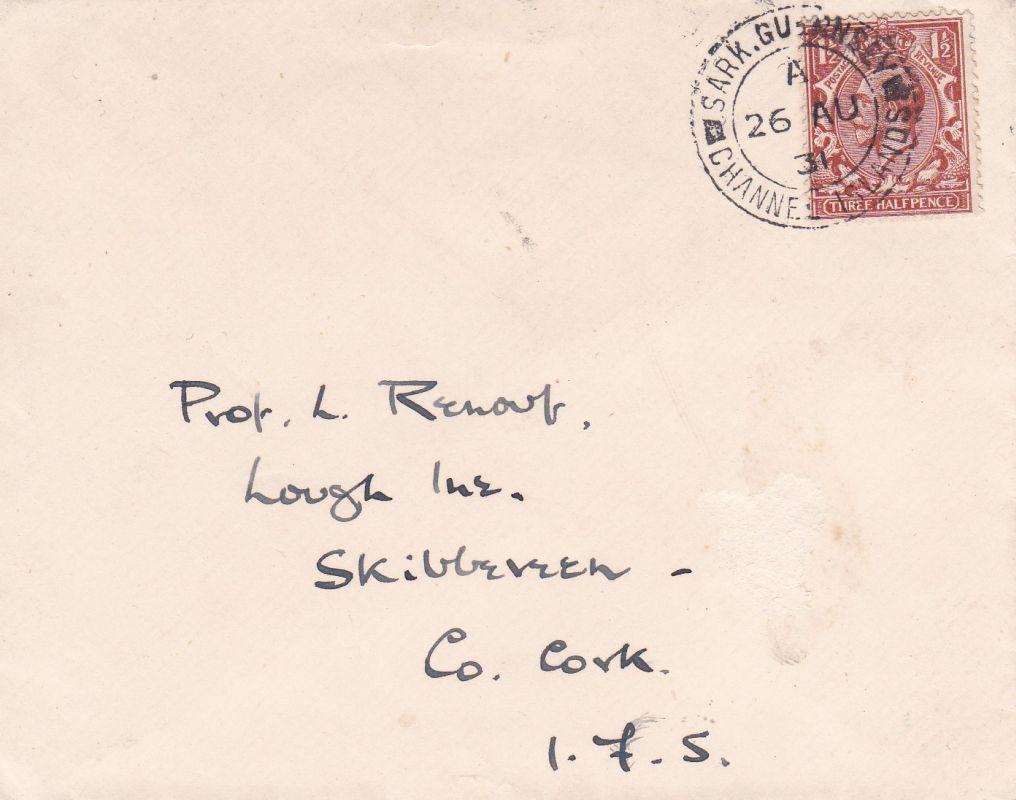 SARK. GUERNSEY
CHANNEL ISLANDS
A
26 AU
31
1½ 1½
POSTAGE REVENUE
THREE HALFPENCE
Prof. L. Renouf,
Lough Ine.
Skibbereen -
Co. Cork.
I. F. S.